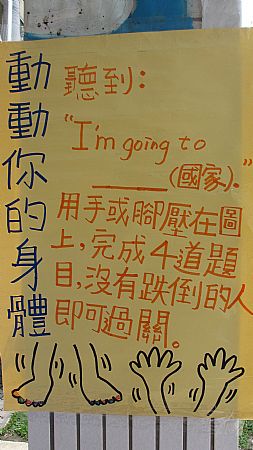 動動你的身體
聽到：
"I'm going to
_____(國家)."
用手或腳壓在圖
上，完成4道題
目，沒有跌倒的人
即可過關。